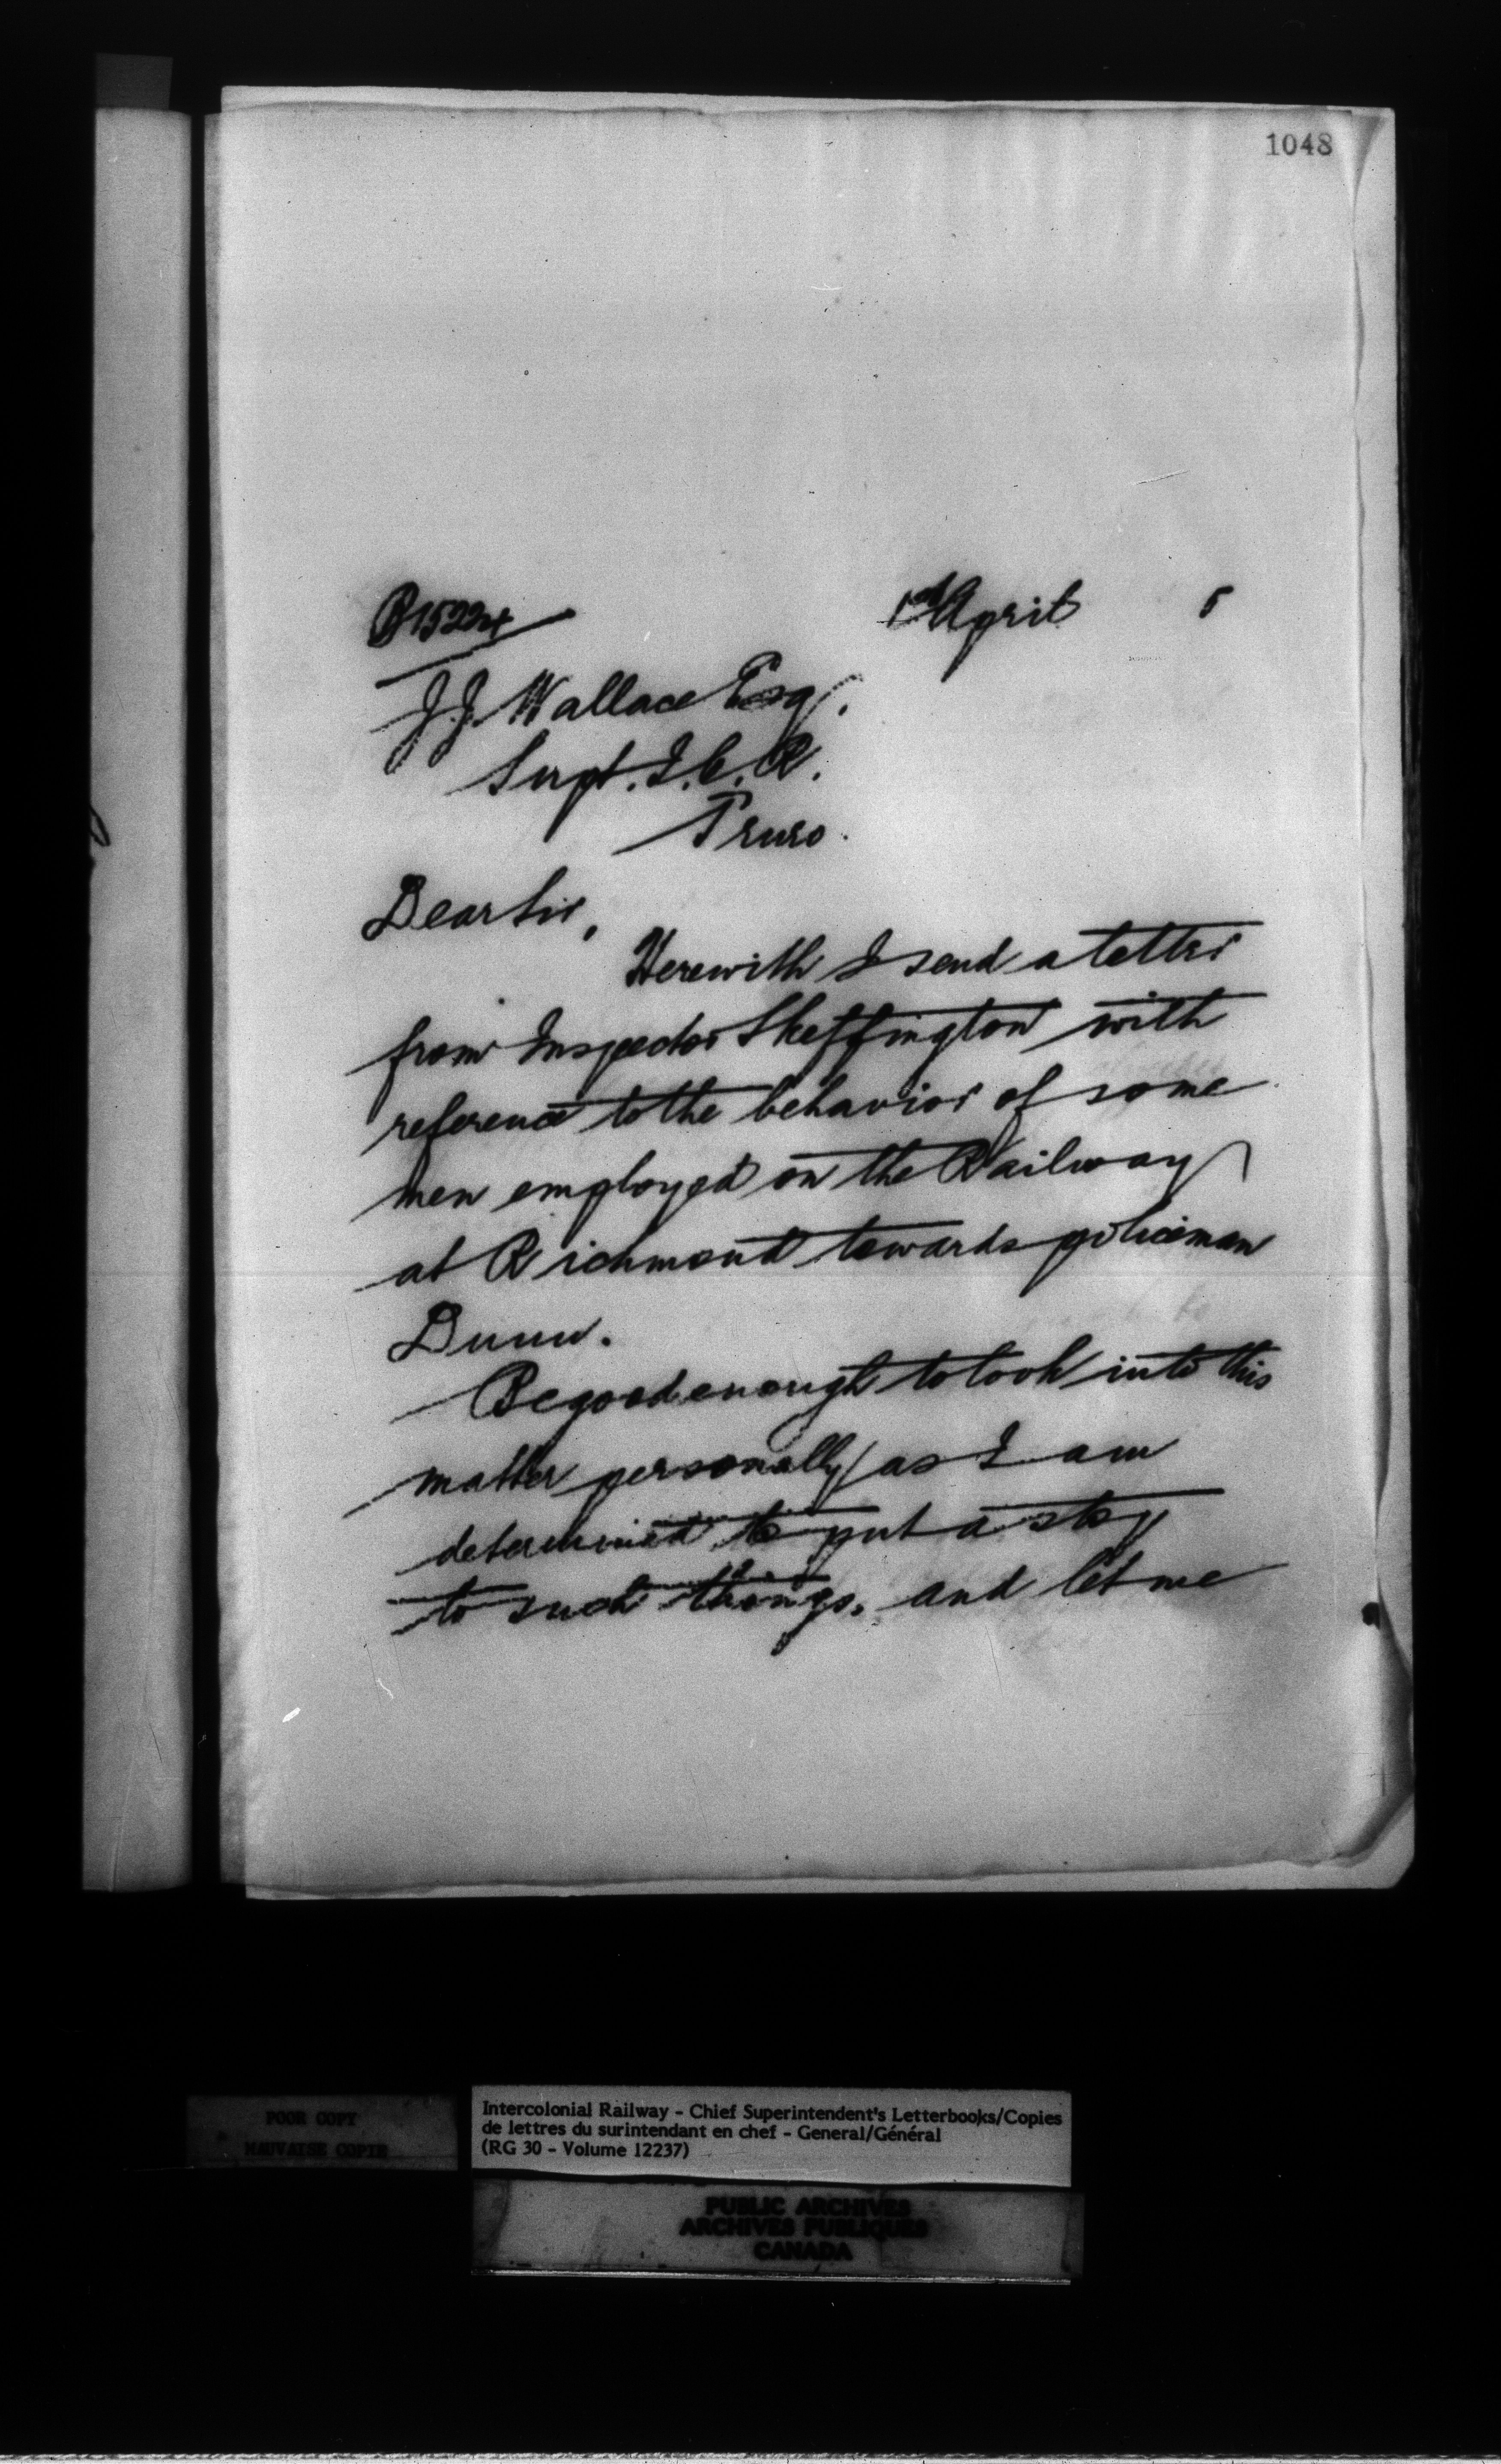 1048
B15224
1st April 5
J.J. Wallace Esq.
Supt. I.C.R.
Truro.
Dear Sir,
Herewith I send a letter
from Inspector Skeffington with
reference to the behavior of some
men employed on the Railway
at Richmond towards policeman
Dunn.
Be good enough to look into this
matter personally as I am
determined to put a stop
to such things. and let me
POOR COPY
MAUVAISE COPIE
Intercolonial Railway - Chief Superintendent's Letterbooks/Copies
de lettres du surintendant en chef - General/Général
(RG 30 - Volume 12237)
PUBLIC ARCHIVES
ARCHIVES PUBLIQUES
CANADA